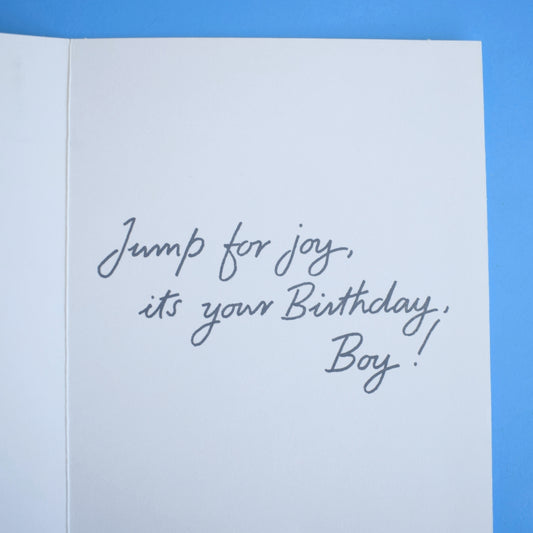 Jump for joy,
its your Birthday,
Boy!